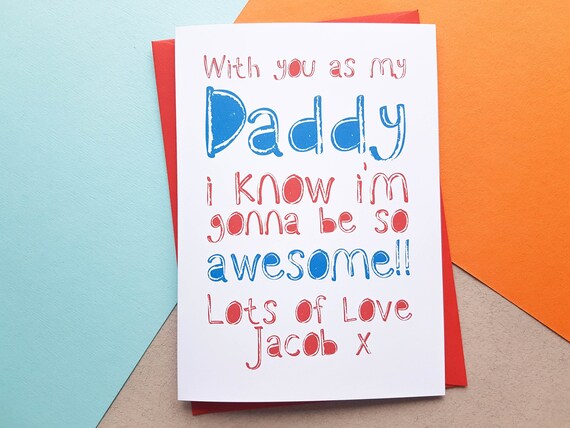 With you as my
Daddy
i know i'm
gonna be so
awesome!!
Lots of Love
Jacob x